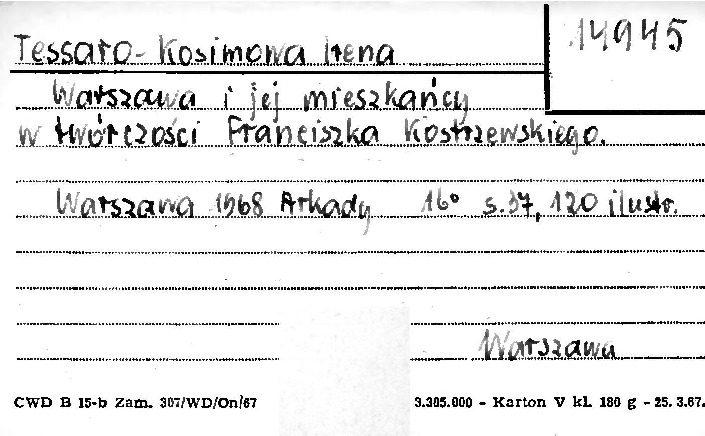 14945
Tessaro-Kosimowa Irena
Warszawa i jej mieszkańcy
w twórczości Franciszka Kostrzewskiego.
Warszawa 1968 Arkady 16° s. 37, 120 ilustr.
Warszawa
CWD B 15-b Zam. 307/WD/On/67 3.305.000 - Karton V kl. 180 g - 25. 3.67.